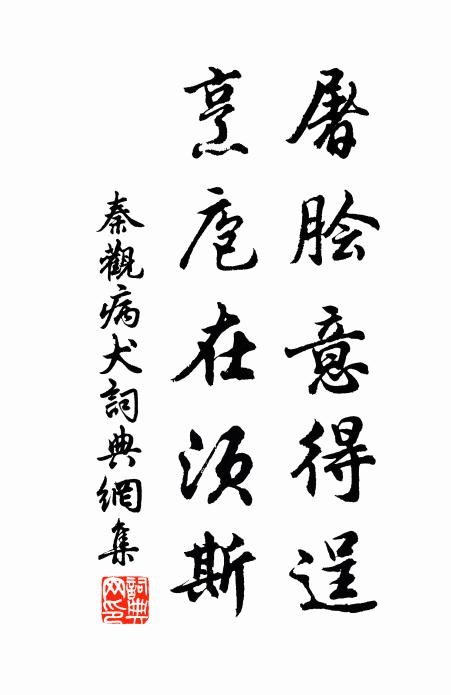 屠脍意得逞
烹庖在须斯
秦觀病犬詞典網集